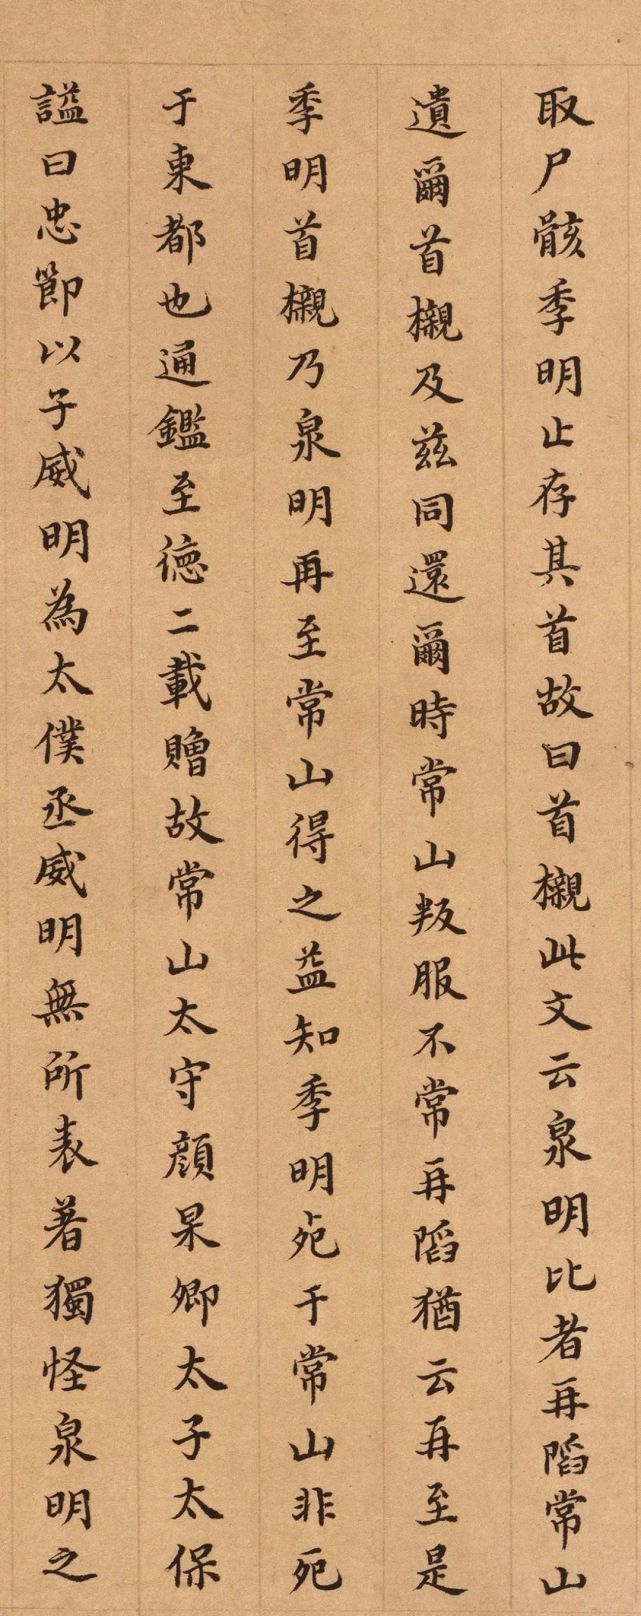 取尸骸季明止存其首故曰首櫬此文云泉明比者再陷常山
遺爾首櫬及茲同還爾時常山叛服不常再陷猶云再至是
季明首櫬乃泉明再至常山得之益知季明死于常山非死
于東都也通鑑至德二載贈故常山太守顔杲卿太子太保
諡曰忠節以子威明為太僕丞威明無所表著獨怪泉明之